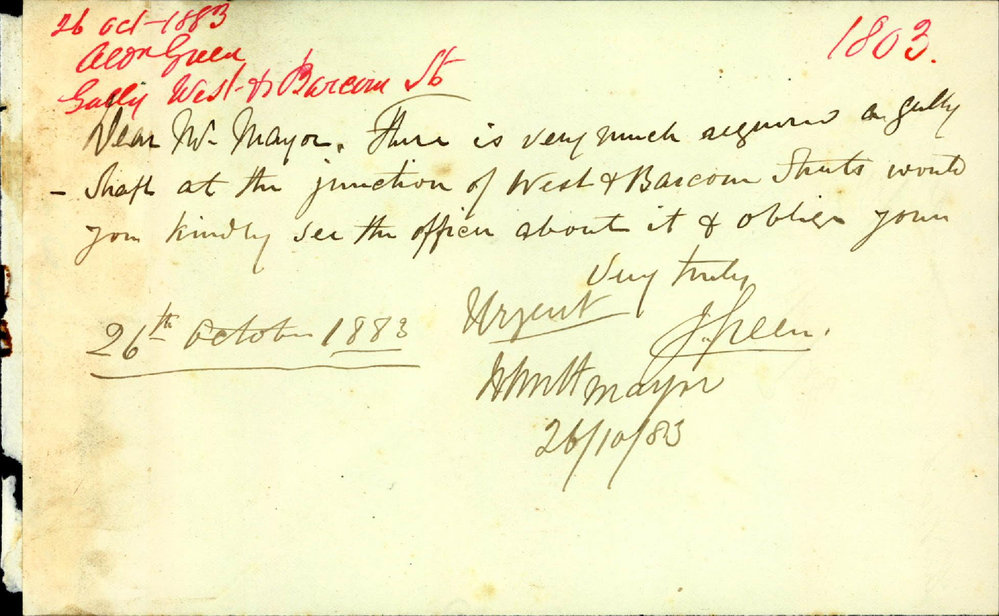 26 Oct - 1883
1803.
Aldn Green
Gully West & Barcom St
Dear Mr Mayor. There is very much required a gully
- Shaft at the junction of West & Barcom Streets would
you kindly see the officer about it & oblige yours
Very truly
J. Green.
26th October 1883
Urgent
Mayor
26/10/83